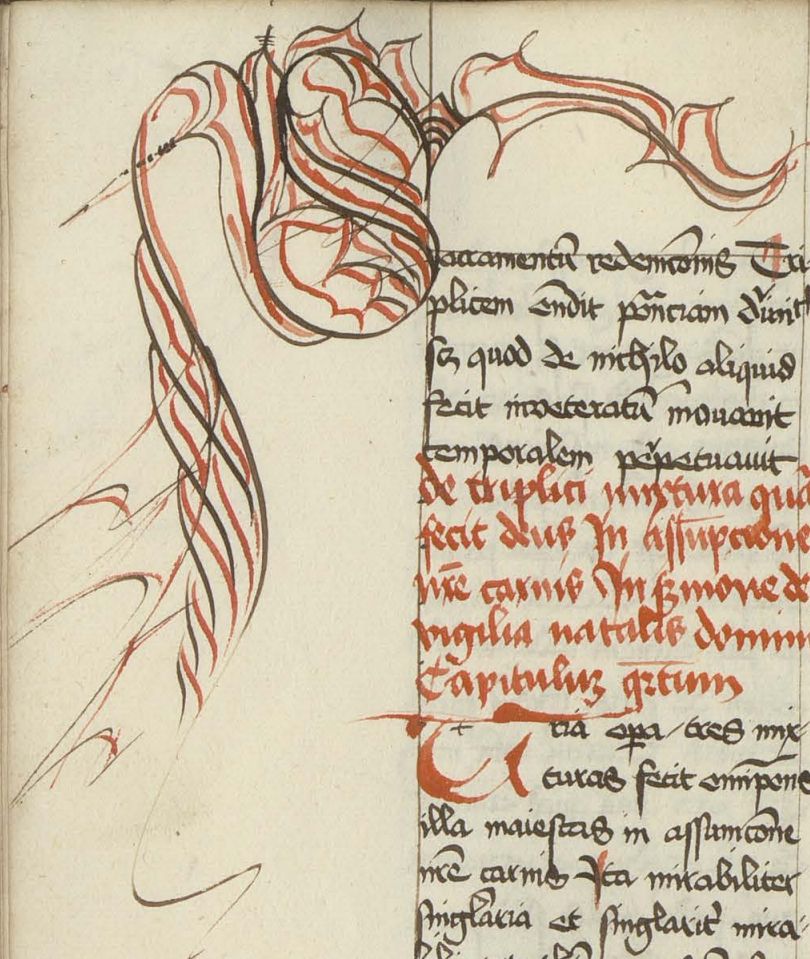 sacramentū redemcōnis Tri
plicem oñdit potn̄ciam
scꝫ quod de nichilo aliquid
fecit inveteratū īnouauit
temporalem perpetuauit
de triplici mixtura quā
fecit deus In assūpcione
nr̄e carnis In ẜmone de
vigilia natalis domini
Capituluꝫ qr̄tum
Tria oꝑa tres mix
turas fecit omīpotens
illa maiestas in assumcōne
nr̄e carnis Ita mirabiliter
singłaria et singlarit᷑ mira